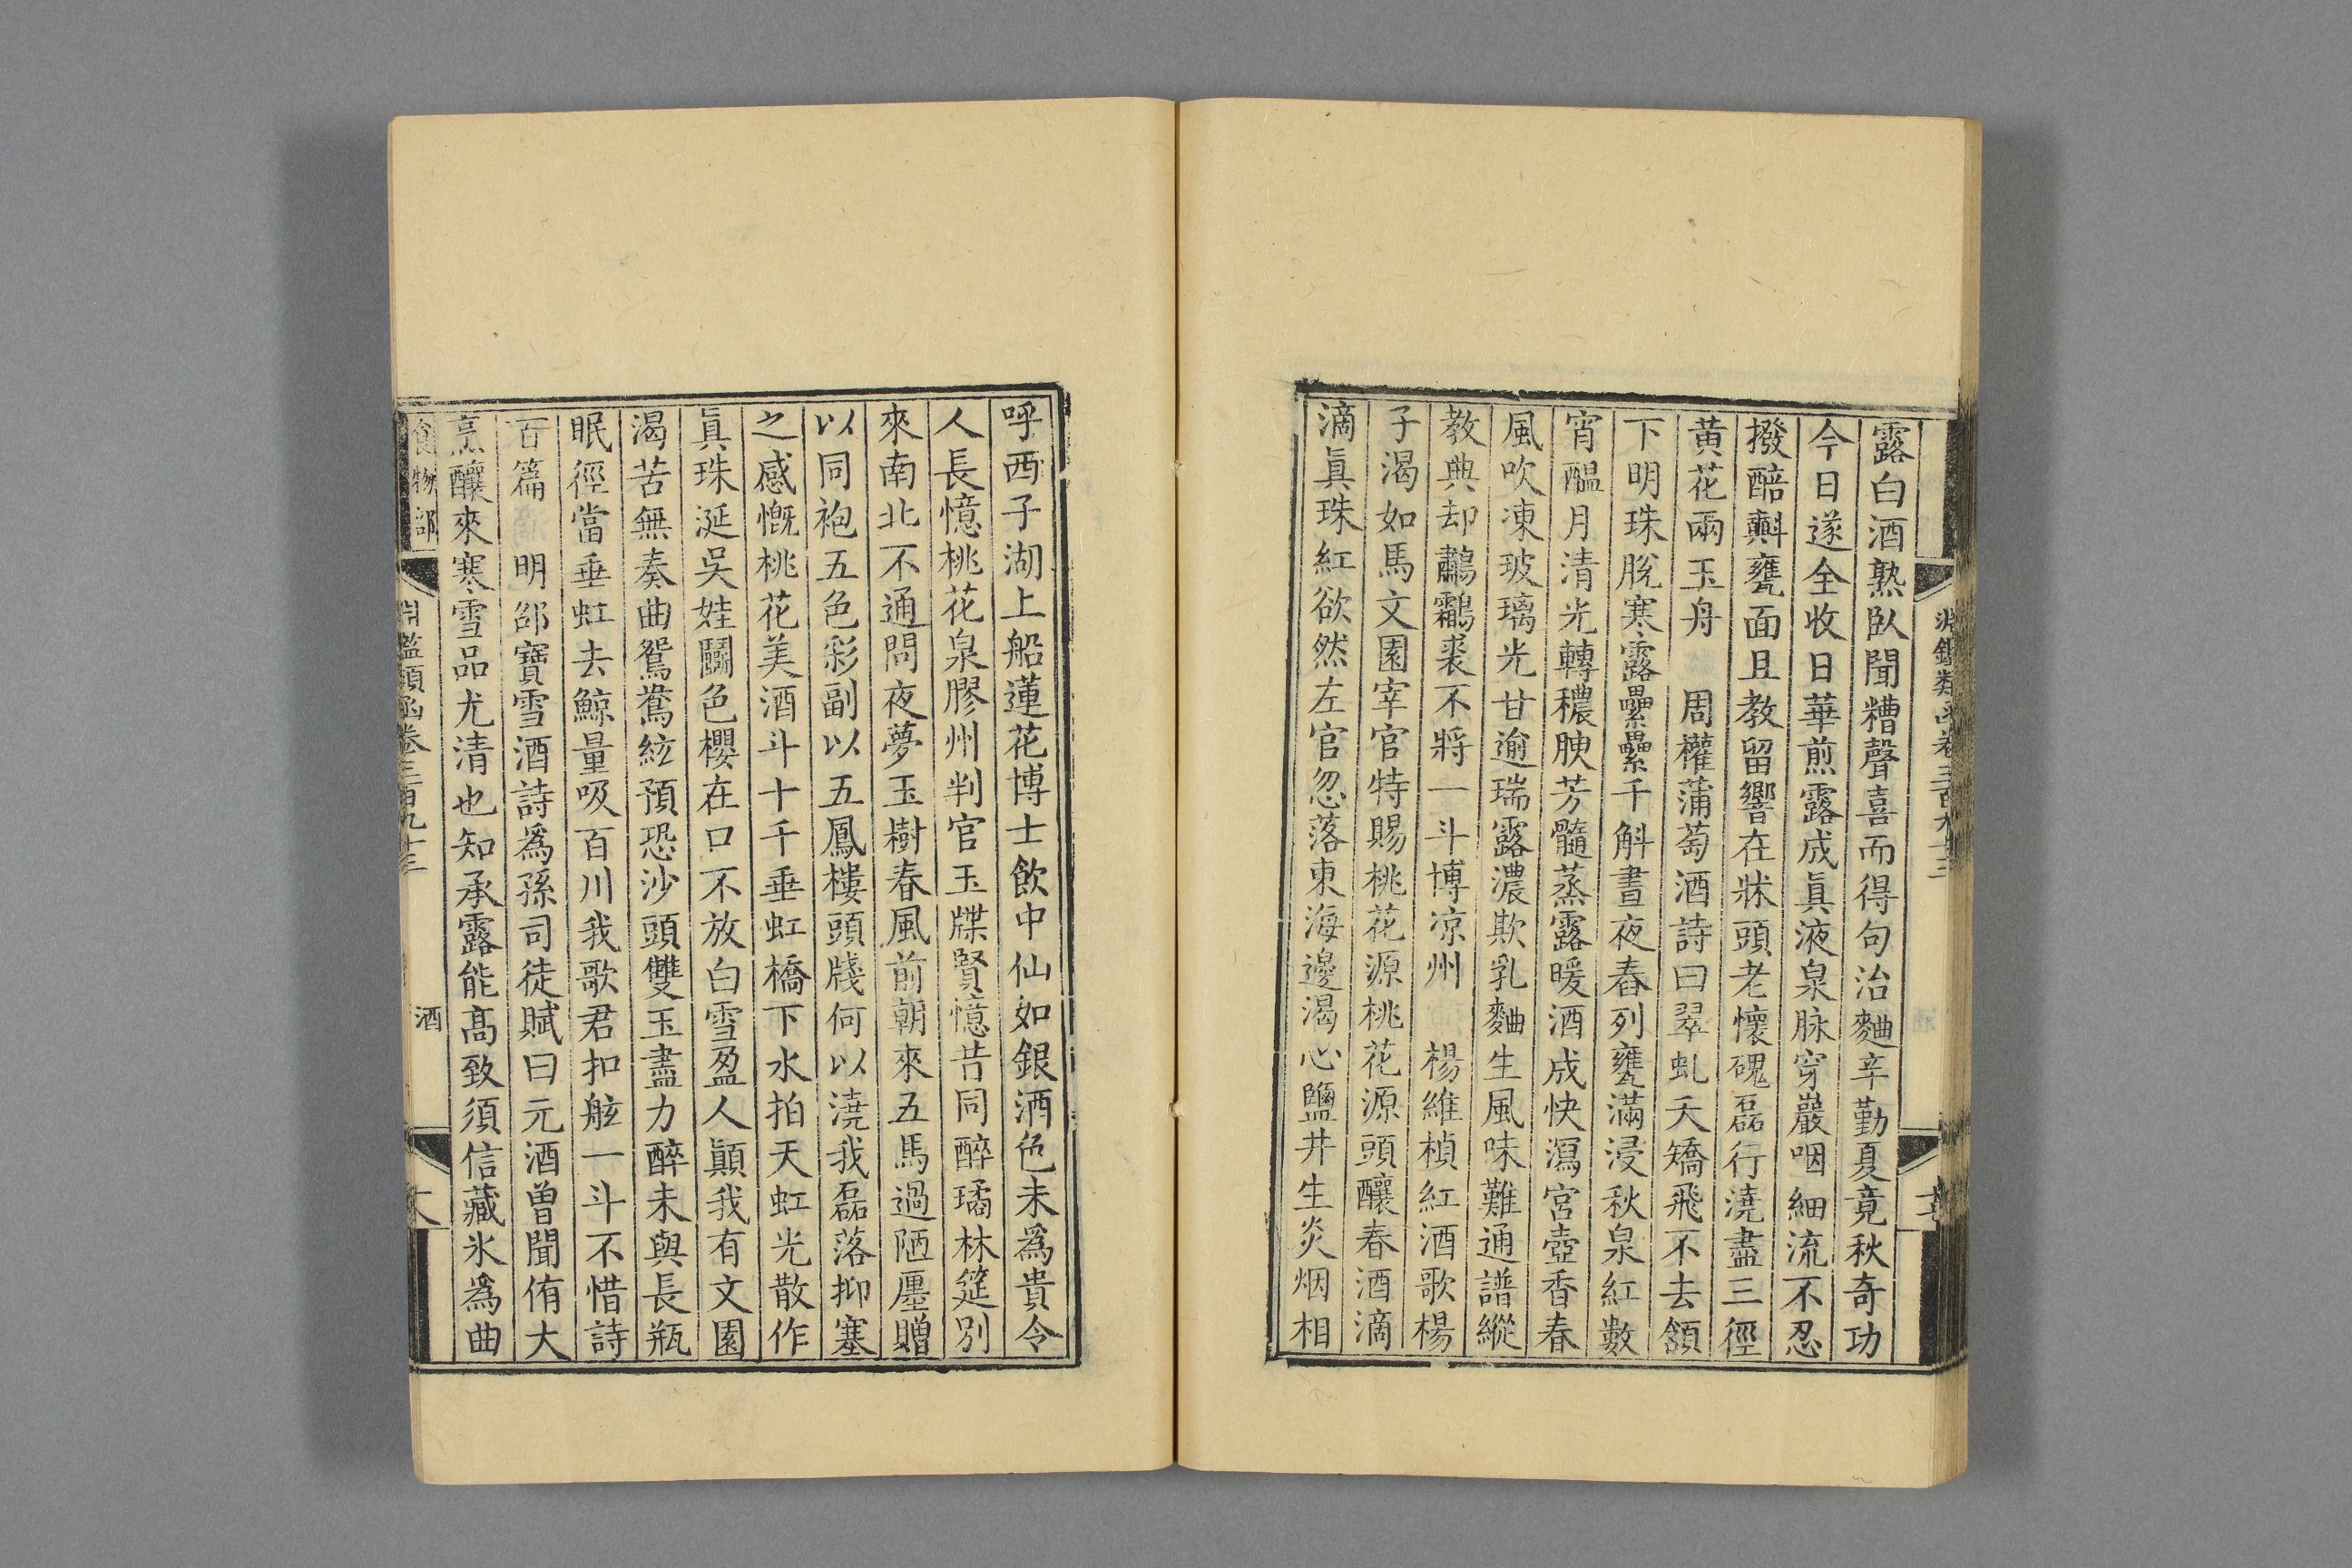 淵鑑類函卷三百九十三
露白酒熟臥聞糟聲喜而得句治麯辛勤夏竟秋奇功
今日遂全收日華煎露成眞液泉脉穿巖咽細流不忍
撥醅斟甕面且教留響在牀頭老懷磈磊行澆盡三徑
黃花兩玉舟　周權蒲萄酒詩曰翠虬夭矯飛不去頷
下明珠脫寒露壘壘千斛晝夜舂列甕滿浸秋泉紅數
宵醞月清光轉穠腴芳髓蒸露暖酒成快瀉宮壺香春
風吹凍玻璃光甘逾瑞露濃欺乳麯生風味難通譜縱
教典却鸘裘不將一斗博凉州　楊維楨紅酒歌楊
子渴如馬文園宰官特賜桃花源桃花源頭釀春酒滴
滴眞珠紅欲然左官忽落東海邊渴心鹽井生炎烟相
呼西子湖上船蓮花博士飲中仙如銀酒色未爲貴令
人長憶桃花泉膠州判官玉牒賢憶昔同醉璚林筵別
來南北不通問夜夢玉樹春風前朝來五馬過陋廛贈
以同袍五色彩副以五鳳樓頭牋何以澆我磊落抑塞
之感慨桃花美酒斗十千垂虹橋下水拍天虹光散作
眞珠涎吳娃鬭色櫻在口不放白雪盈人顚我有文園
渴苦無奏曲鴛鴦絃預恐沙頭雙玉盡力醉未與長瓶
眠徑當垂虹去鯨量吸百川我歌君扣舷一斗不惜詩
百篇　明邵寶雪酒詩爲孫司徒賦曰元酒曾聞侑大
烹釀來寒雪品尤清也知承露能高致須信藏氷爲曲
食物部
淵鑑類函卷三百九十三
酒